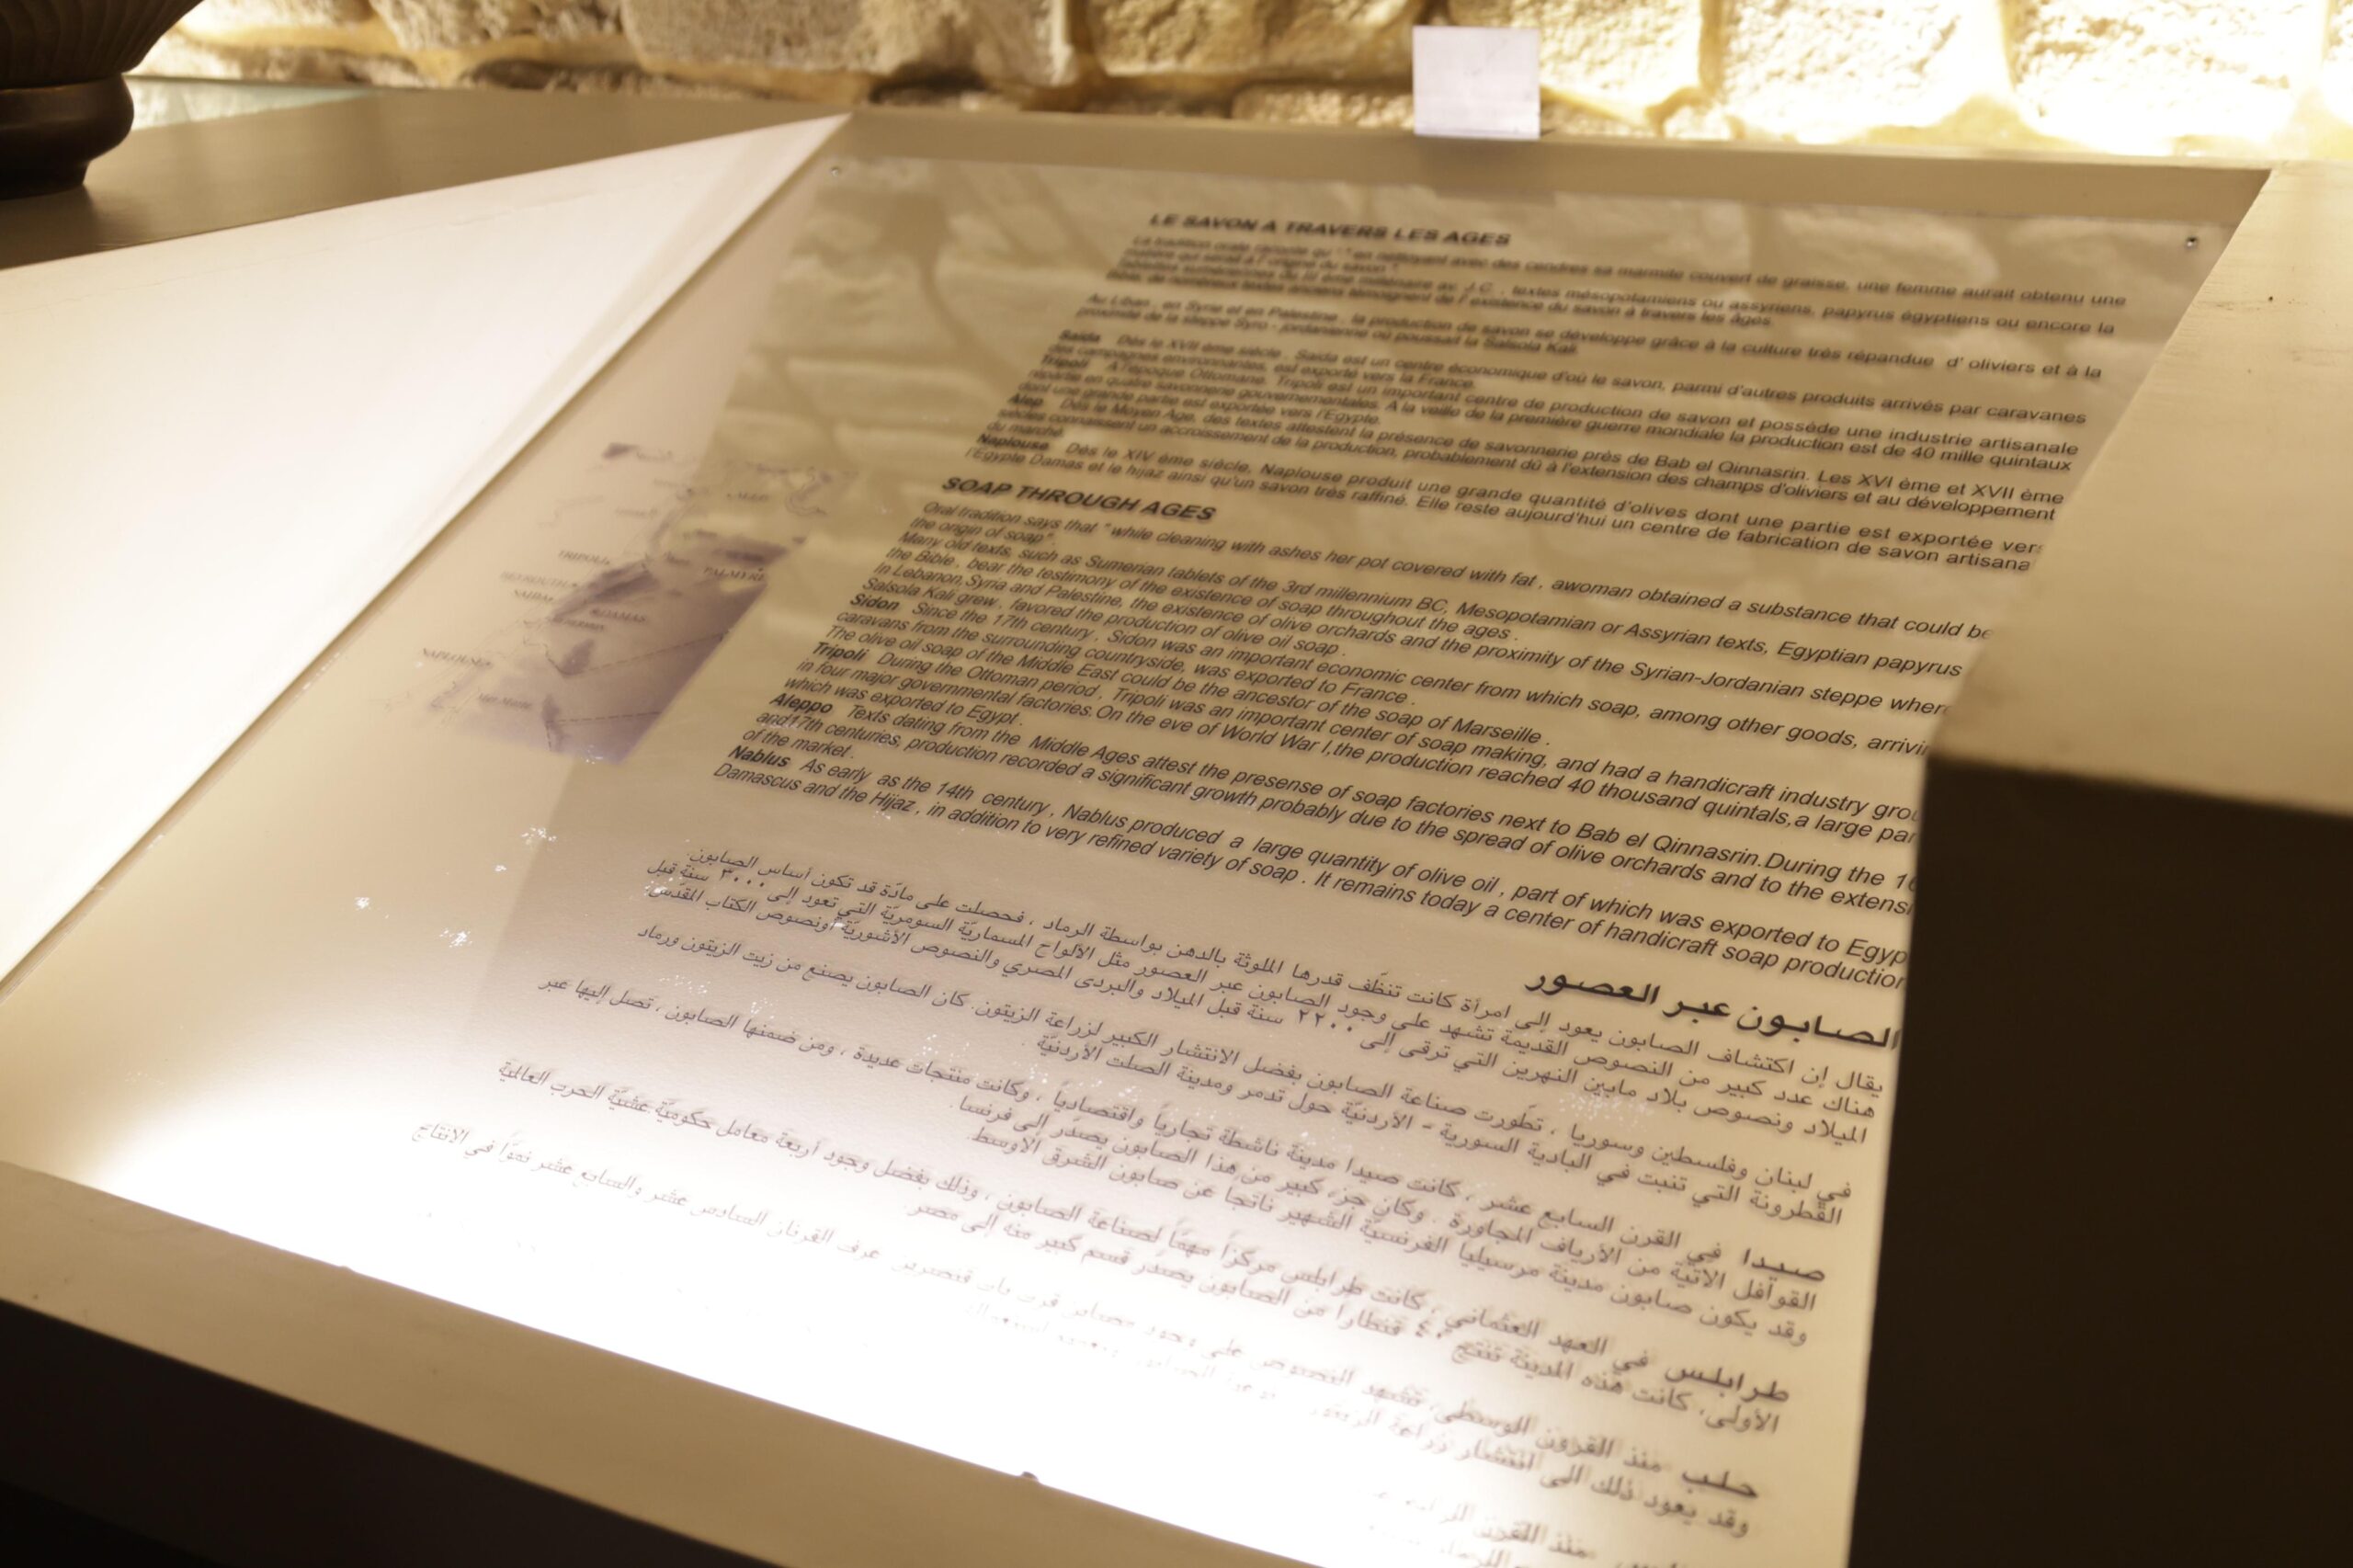 LE SAVON A TRAVERS LES AGES
La tradition orale raconte qu' " en nettoyant avec des cendres sa marmite couvert de graisse, une femme aurait obtenu une
matière qui serait à l' origine du savon "
Tablettes sumériennes du III ème millénaire av. J.C. , textes mésopotamiens ou assyriens, papyrus égyptiens ou encore la
Bible, de nombreux textes anciens témoignent de l' existence du savon à travers les âges.
Au Liban , en Syrie et en Palestine , la production de savon se développe grâce à la culture très répandue d' oliviers et à la
proximité de la steppe Syro - jordanienne où poussait la Salsola Kali.
Saida Dès le XVII ème siècle , Saida est un centre économique d'où le savon, parmi d'autres produits arrivés par caravanes
des campagnes environnantes, est exporté vers la France.
Tripoli A l'époque Ottomane, Tripoli est un important centre de production de savon et possède une industrie artisanale
répartie en quatre savonnerie gouvernementales. A la veille de la première guerre mondiale la production est de 40 mille quintaux
dont une grande partie est exportée vers l'Egypte.
Alep Dès le Moyen Age, des textes attestent la présence de savonnerie près de Bab el Qinnasrin. Les XVI ème et XVII ème
siècles connaissent un accroissement de la production, probablement dû à l'extension des champs d'oliviers et au développement
du marché.
Naplouse Dès le XIV ème siècle, Naplouse produit une grande quantité d'olives dont une partie est exportée vers
l'Egypte Damas et le hijaz ainsi qu'un savon très raffiné. Elle reste aujourd'hui un centre de fabrication de savon artisana
SOAP THROUGH AGES
Oral tradition says that " while cleaning with ashes her pot covered with fat , awoman obtained a substance that could be
the origin of soap".
Many old texts, such as Sumerian tablets of the 3rd millennium BC, Mesopotamian or Assyrian texts, Egyptian papyrus
the Bible , bear the testimony of the existence of soap throughout the ages .
In Lebanon,Syria and Palestine, the existence of olive orchards and the proximity of the Syrian-Jordanian steppe where
Salsola Kali grew , favored the production of olive oil soap .
Sidon Since the 17th century , Sidon was an important economic center from which soap, among other goods, arrivin
caravans from the surrounding countryside, was exported to France .
The olive oil soap of the Middle East could be the ancestor of the soap of Marseille .
Tripoli During the Ottoman period , Tripoli was an important center of soap making, and had a handicraft industry grou
in four major governmental factories.On the eve of World War I,the production reached 40 thousand quintals,a large par
which was exported to Egypt .
Aleppo Texts dating from the Middle Ages attest the presense of soap factories next to Bab el Qinnasrin.During the 16
and17th centuries, production recorded a significant growth probably due to the spread of olive orchards and to the extensi
of the market .
Nablus As early as the 14th century , Nablus produced a large quantity of olive oil , part of which was exported to Egyp
Damascus and the Hijaz , in addition to very refined variety of soap . It remains today a center of handicraft soap production
الصابون عبر العصور
يقال إن اكتشاف الصابون يعود إلى امرأة كانت تنظّف قدرها الملوثة بالدهن بواسطة الرماد ، فحصلت على مادّة قد تكون أساس الصابون
هناك عدد كبير من النصوص القديمة تشهد على وجود الصابون عبر العصور مثل الألواح المسماريّة السومريّة التي تعود إلى ٣٠٠٠ سنة قبل
الميلاد ونصوص بلاد مابين النهرين التي ترقى إلى ٢٢٠٠ سنة قبل الميلاد والبردى المصري والنصوص الأشوريّة أونصوص الكتاب المقدّس.
في لبنان وفلسطين وسوريا ، تطّورت صناعة الصابون بفضل الانتشار الكبير لزراعة الزيتون. كان الصابون يصنع من زيت الزيتون ورماد
القطرونة التي تنبت في البادية السورية - الأردنيّة حول تدمر ومدينة الصلت الأردنيّة .
صيدا في القرن السابع عشر ، كانت صيدا مدينة ناشطة تجارياً واقتصادياً ، وكانت منتجات عديدة ، ومن ضمنها الصابون ، تصل إليها عبر
القوافل الآتية من الأرياف المجاورة . وكان جزء كبير من هذا الصابون يصدّر إلى فرنسا.
وقد يكون صابون مدينة مرسيليا الفرنسيّة الشهير ناتجاً عن صابون الشرق الأوسط.
طرابلس في العهد العثماني ، كانت طرابلس مركزاً مهمّاً لصناعة الصابون ، وذلك بفضل وجود أربعة معامل حكوميّة.عشيّة الحرب العالميّة
الأولى، كانت هذه المدينة تنتج ٤٠ قنطاراً من الصابون يصدّر قسم كبير منه إلى مصر.
حلب منذ القرون الوسطى، تشهد النصوص على وجود مصابن قرب باب قنصرين. عرف القرنان السادس عشر والسابع عشر نموّاً في الانتاج
وقد يعود ذلك الى انتشار زراعة الزيتون
منذ القرن
TRIPOLI
BEYROUTH
SAIDA
DAMAS
PALMYRE
NAPLOUSE